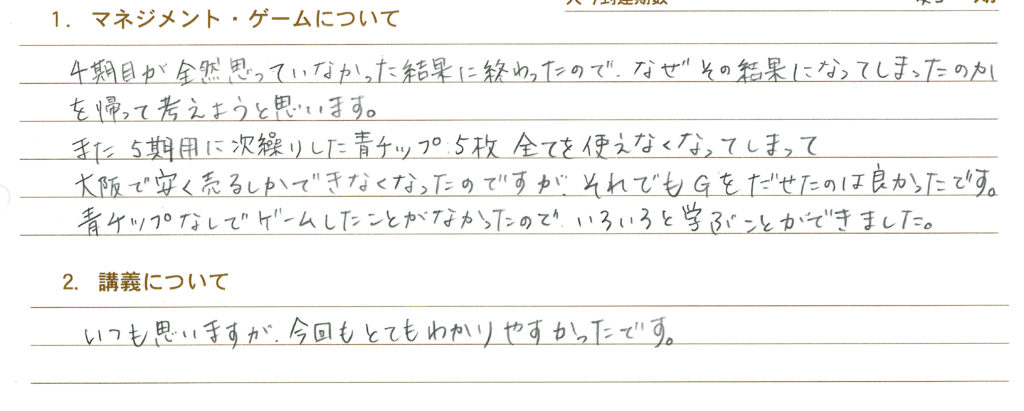 1. マネジメント・ゲームについて
4期目が全然思っていなかった結果に終わったので、なぜその結果になってしまったのか
を帰って考えようと思います。
また5期用に次繰りした青チップ5枚全てを使えなくなってしまって
大阪で安く売るしかできなくなったのですが、それでもGをだせたのは良かったです。
青チップなしでゲームしたことがなかったので、いろいろと学ぶことができました。
2. 講義について
いつも思いますが、今回もとてもわかりやすかったです。